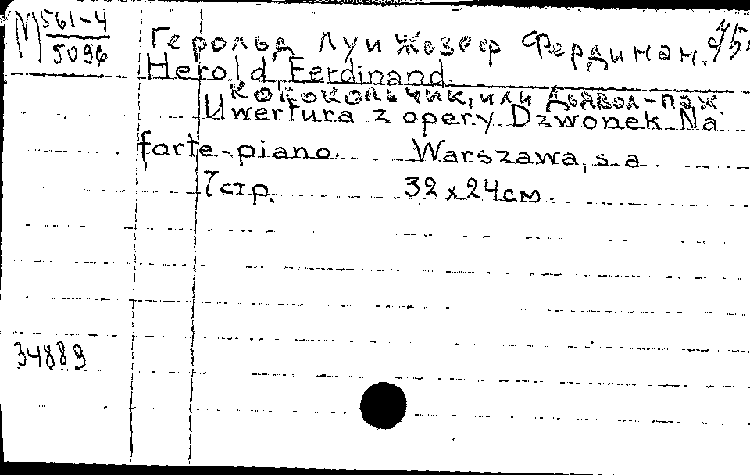 М 561-4
5096
Герольд Луи Жозеф Фердинан. 45
Herold Ferdinand.
Кококольчик, или Дьявол-паж
Uwertura z opery Dzwonek Na
forte-piano Warszawa, s.a
7 стр. 32 x 24 см.
34889